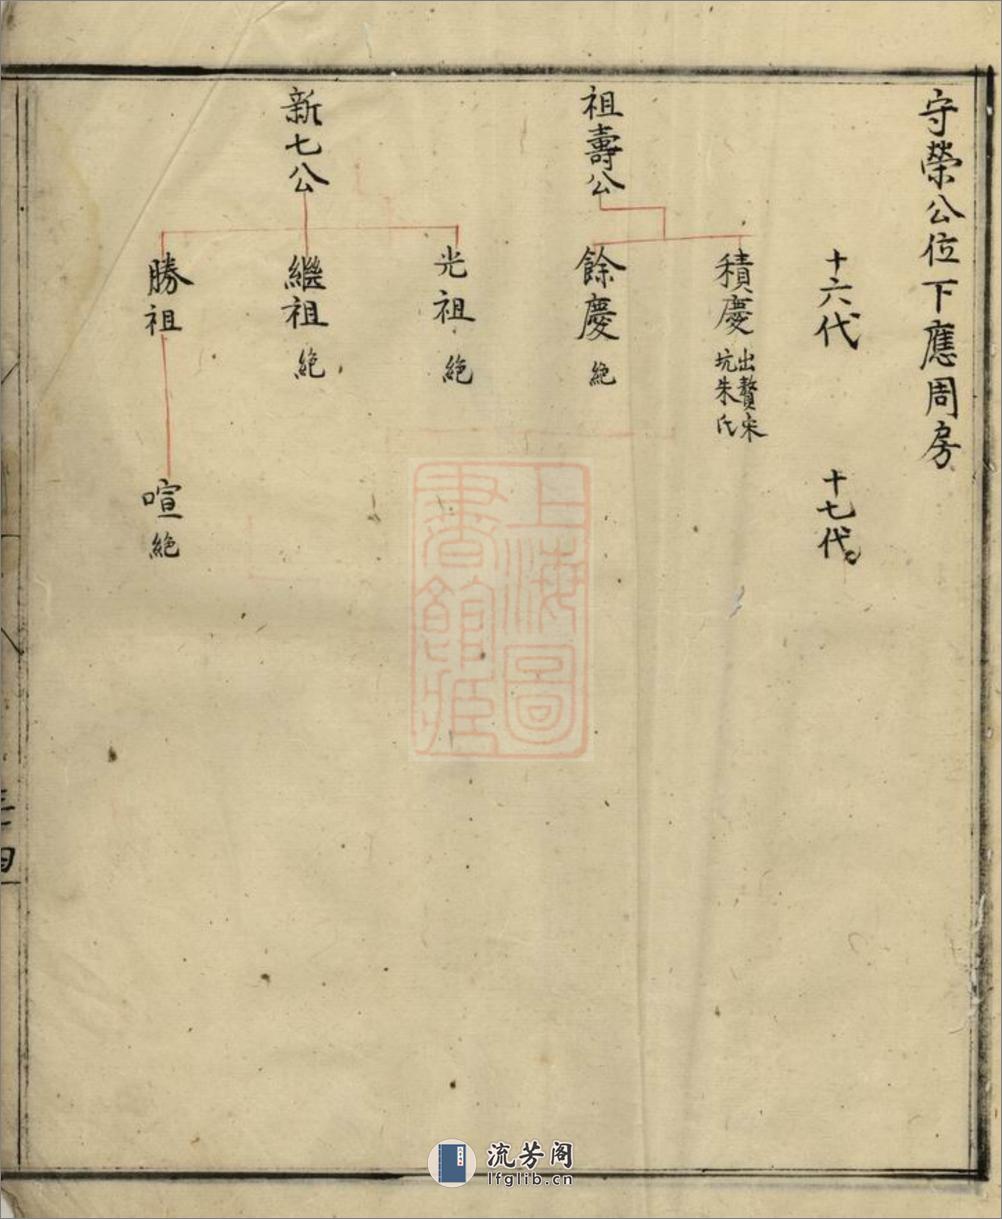 守榮公位下應周房
十六代
十七代
積慶
出贅宋
坑朱氏
祖壽公
餘慶
絕
光祖
絕
新七公
繼祖
絕
勝祖
絕
喧
上海圖
書館藏
流芳阁
lfglib.cn